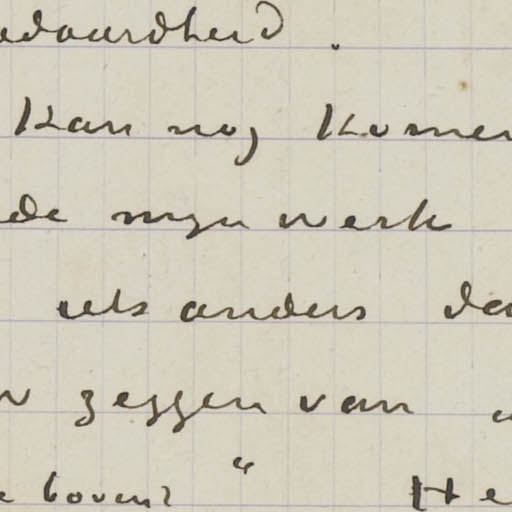 edaardheid.
Kan nog komen
de mijn werk
iets anders da
zeggen van "
boven? " He